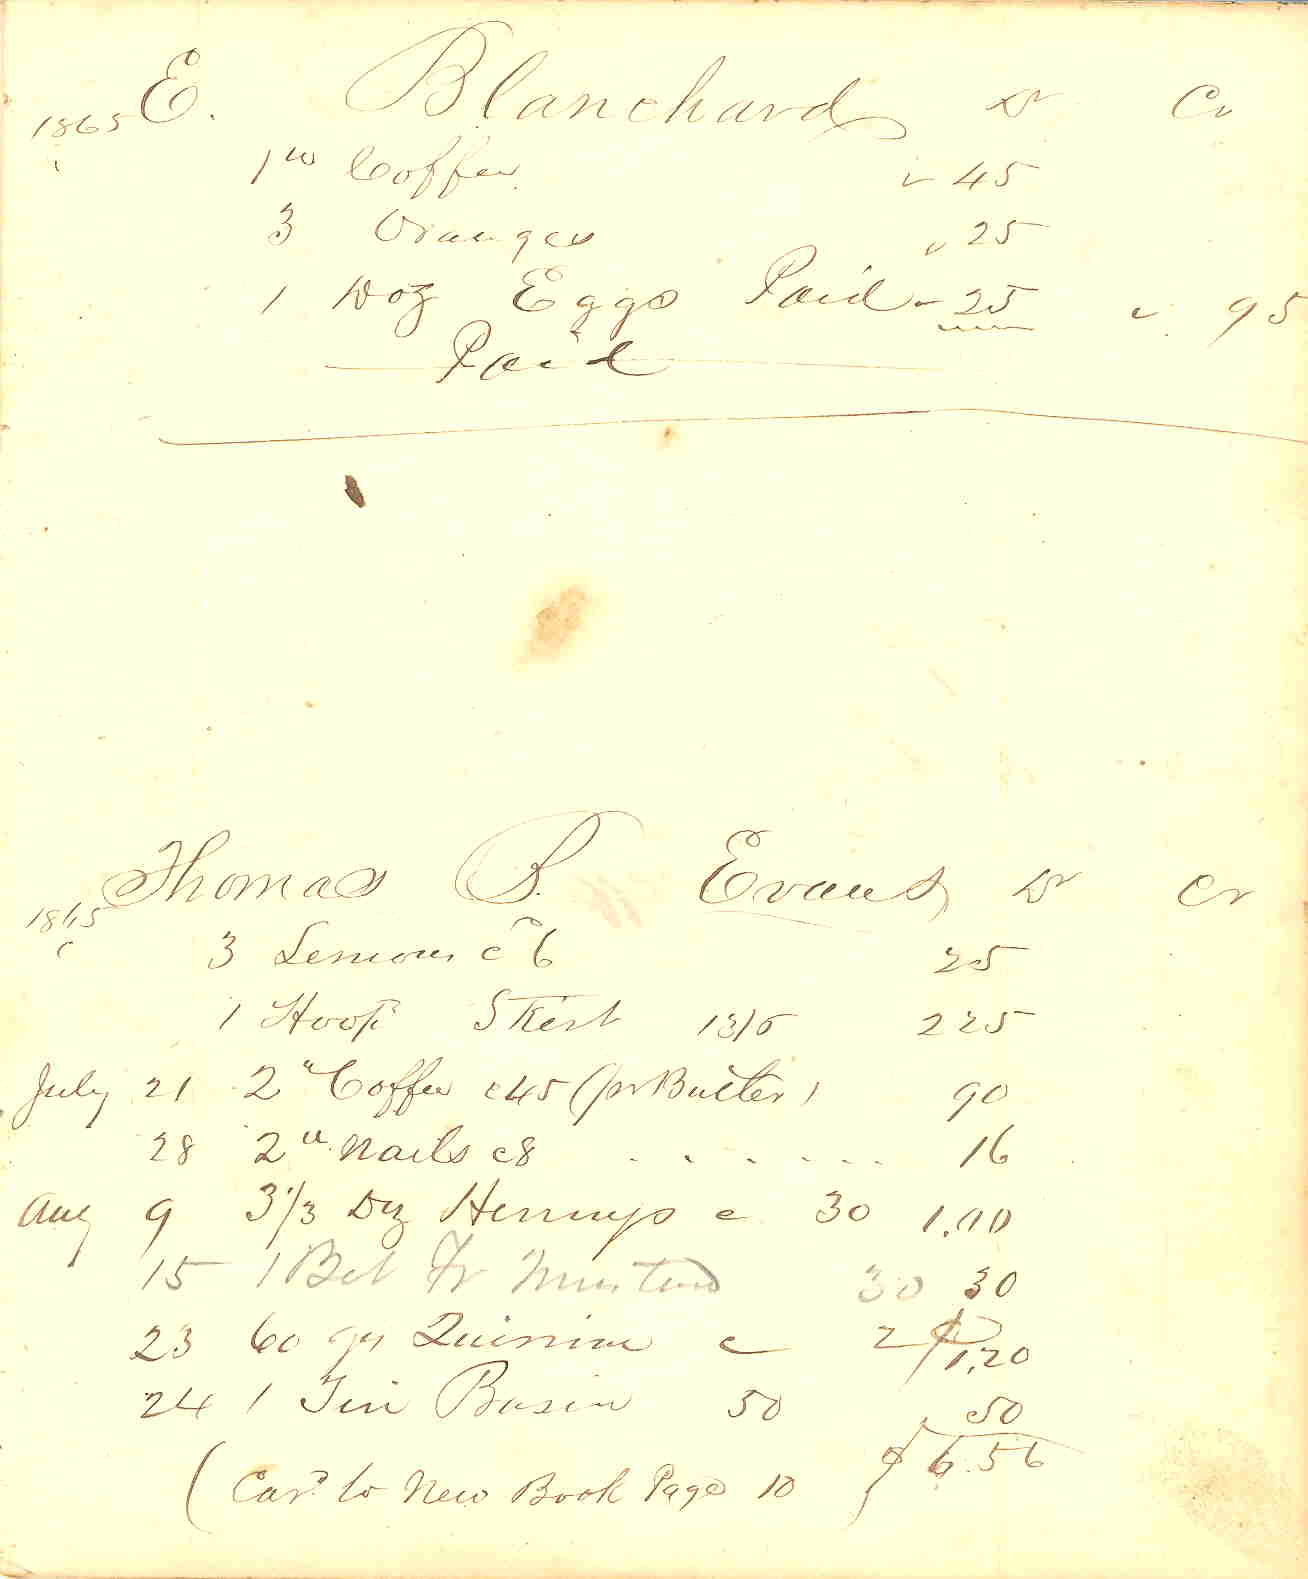 E. Blanchard Dr Cr
1865
1 lb Coffee 45
3 Oranges 25
1 Doz Eggs Paid 25 95
Paid
Thomas S. Evans Dr Cr
1865
3 Lemons c 6 25
1 Hoop Skirt 225
July 21 2 " Coffee c45 (pr Butler) 90
28 2 " Nails c8 . . . . . . . 16
Aug 9 3 1/3 Dz Herrings c 30 1.00
15 1 Bot Fr Mustard 30 30
23 60 grs Quinine c 2 1.20
24 1 Tin Basin 50 50
$ 6.56
(Card to New Book Page 10